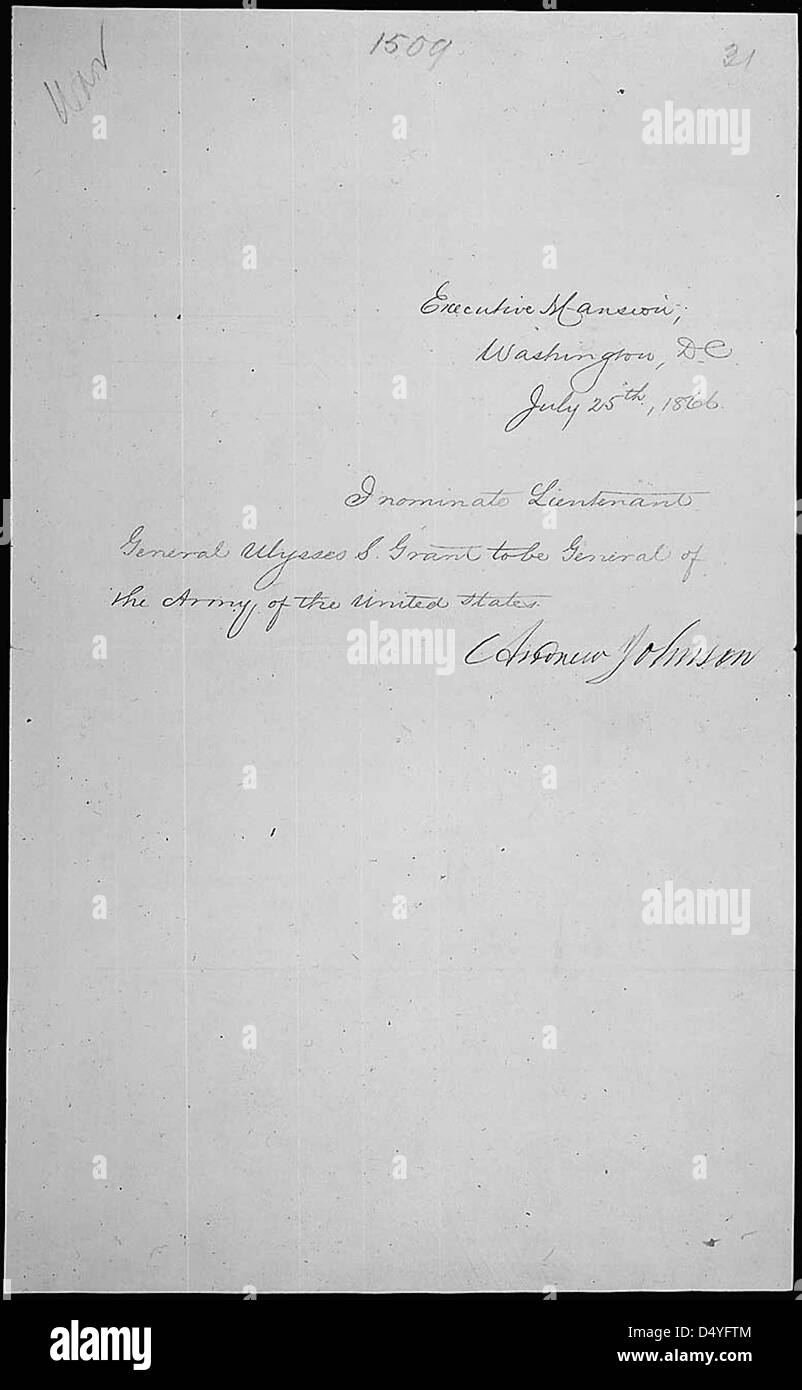 War
1509
31
Executive Mansion,
Washington, D.C.
July 25th, 1866.
I nominate Lieutenant
General Ulysses S. Grant to be General of
the Army of the United States.
Andrew Johnson
alamy
alamy
alamy
alamy
Image ID: D4YFTM
www.alamy.com